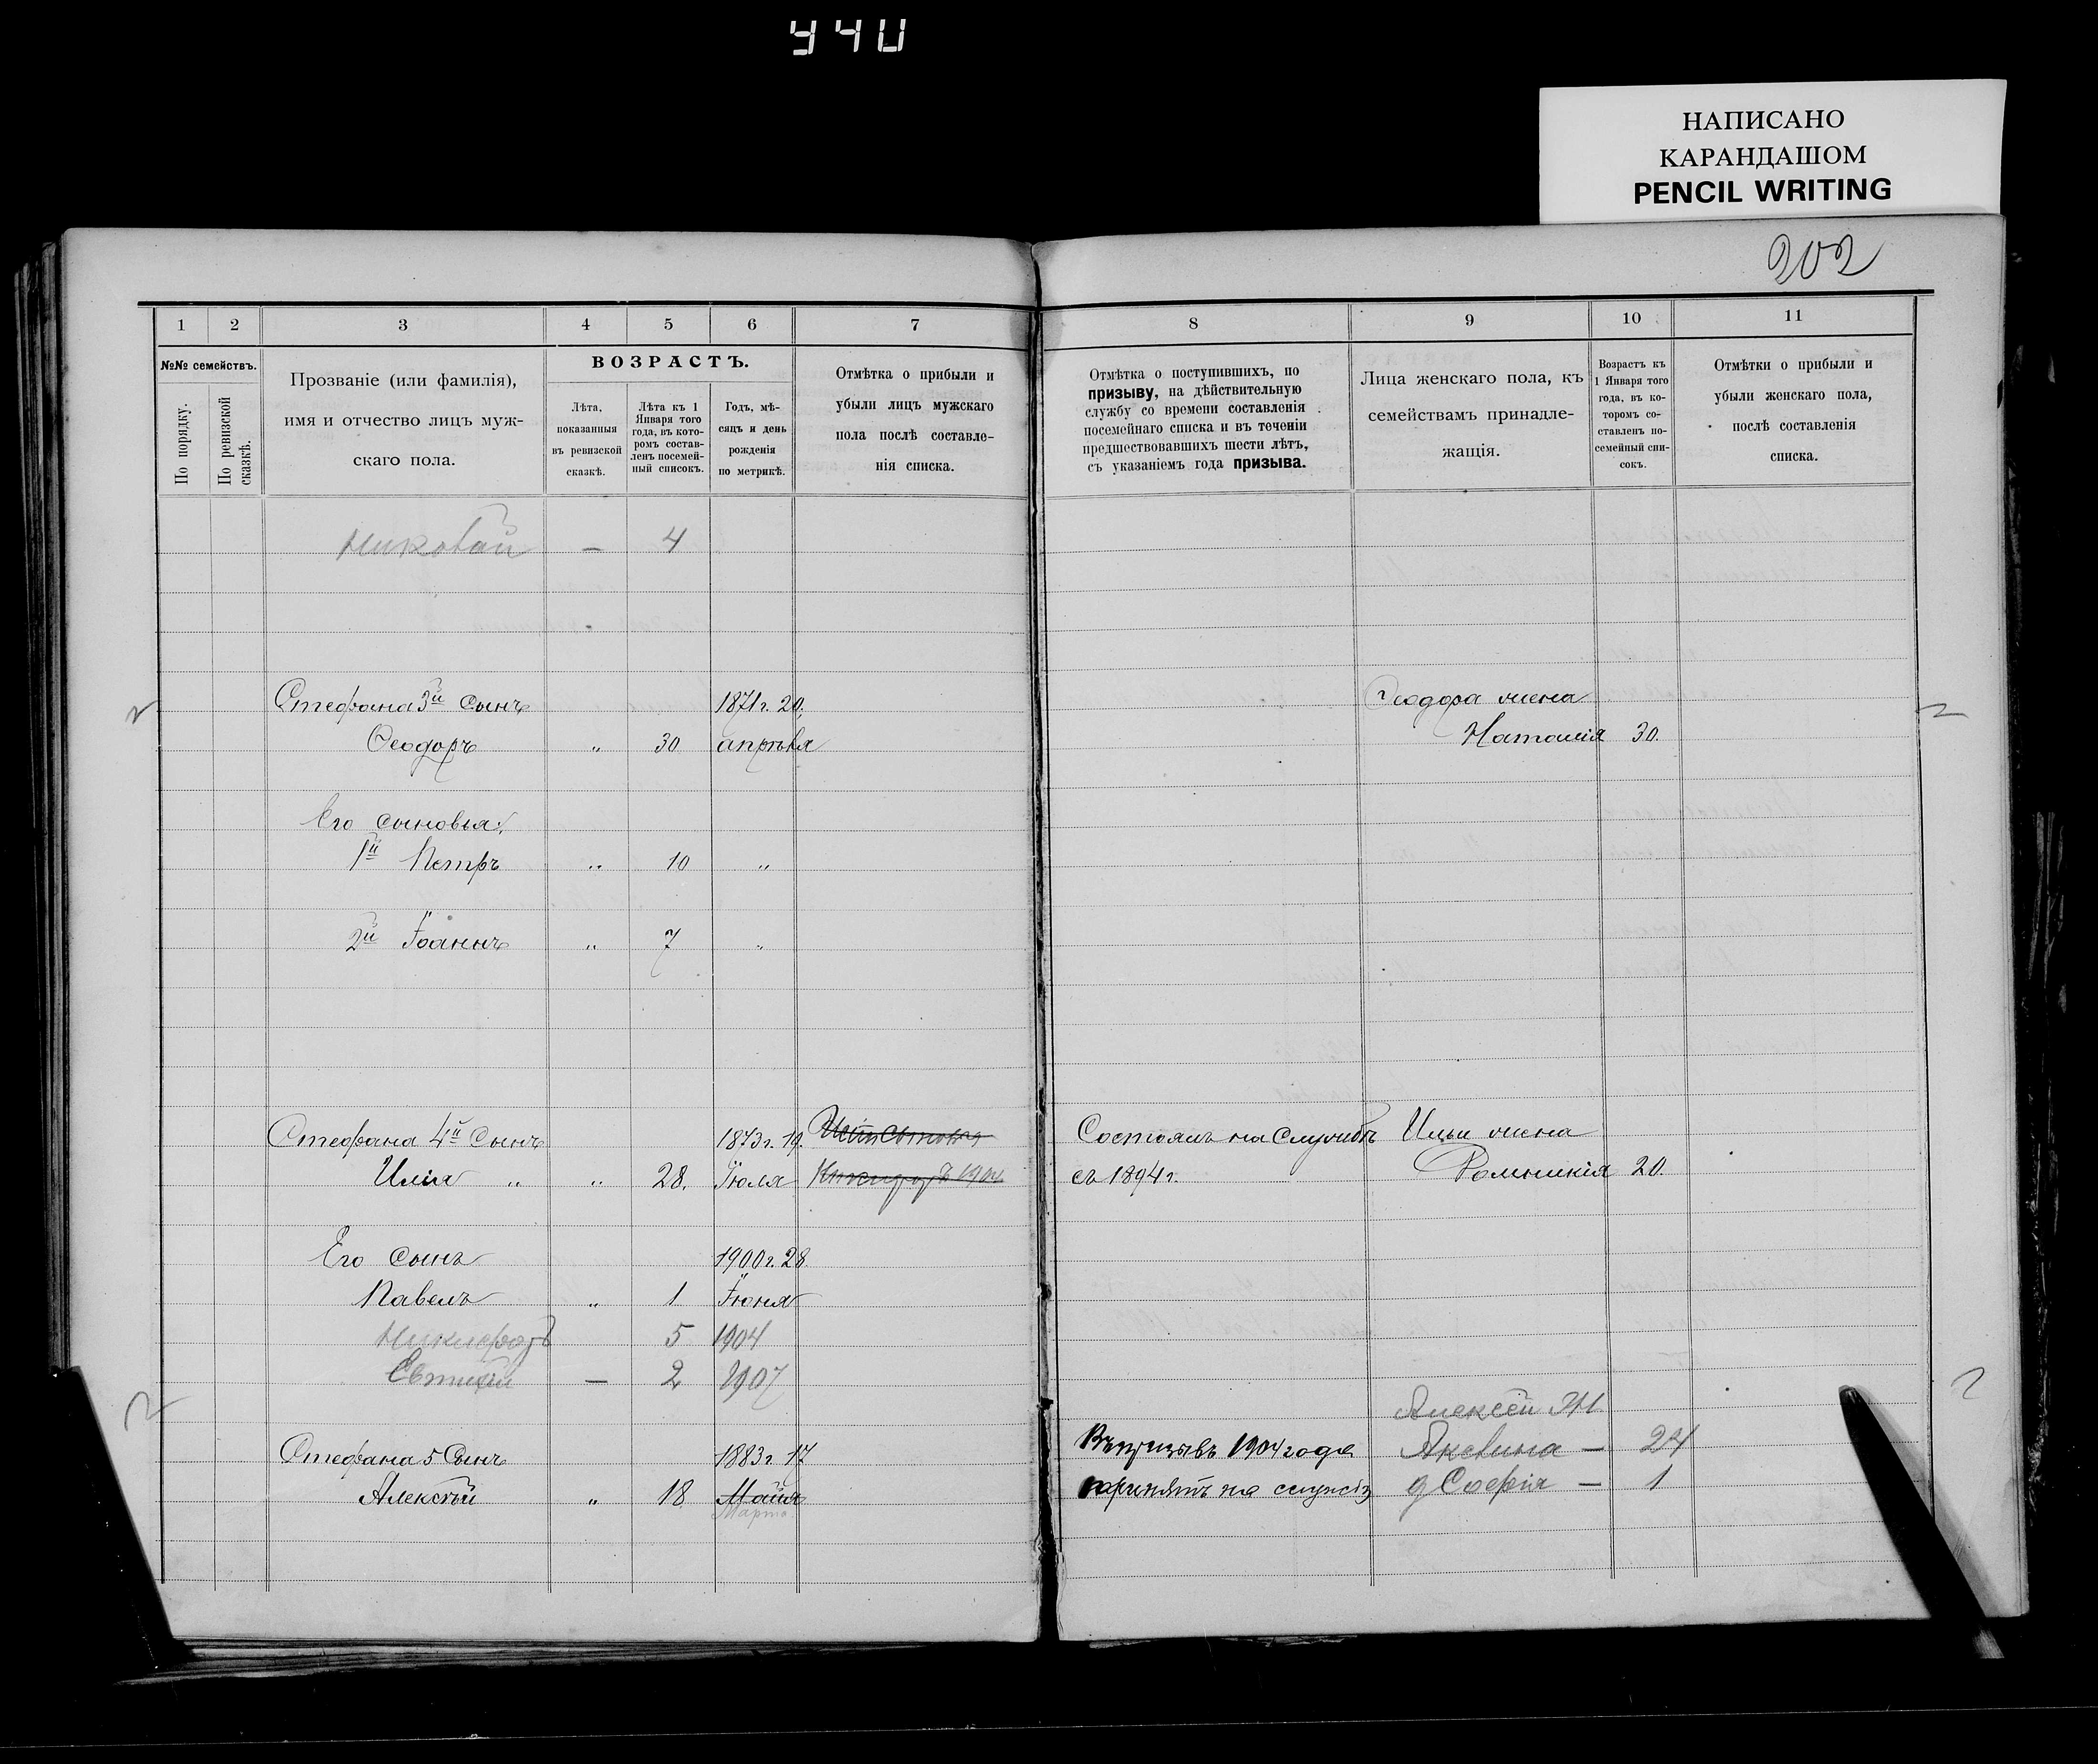 440
НАПИСАНО
КАРАНДАШОМ
PENCIL WRITING
202
1 2 3 4 5 6 7
№№ семействъ.
По порядку.
По ревизской сказкѣ.
Прозваніе (или фамилія),
имя и отчество лицъ муж-
скаго пола.
ВОЗРАСТЪ.
Лѣта,
показанныя
въ ревизской
сказкѣ.
Лѣта къ 1
Января того
года, въ кото-
ромъ состав-
ленъ посемей-
ный списокъ.
Годъ, мѣ-
сяцъ и день
рожденія
по метрикѣ.
Отмѣтка о прибыли и
убыли лицъ мужскаго
пола послѣ составле-
нія списка.
8 9 10 11
Отмѣтка о поступившихъ, по
призыву, на дѣйствительную
службу со времени составленія
посемейнаго списка и въ теченіи
предшествовавшихъ шести лѣтъ,
съ указаніемъ года призыва.
Лица женскаго пола, къ
семействамъ принадле-
жащія.
Возрастъ къ
1 Января того
года, въ ко-
торомъ со-
ставленъ по-
семейный спи-
сокъ.
Отмѣтки о прибыли и
убыли женскаго пола,
послѣ составленія
списка.
Николай — 4
Стефана 3й сынъ 1871 г. 20. Феодора жена
Феодоръ " 30 апрѣля Наталія 30.
Его сыновья:
1й Петръ " 10 "
2й Іоаннъ " 7 "
Стефана 4й Сынъ 1873 г. 19. Состоялъ на Службѣ Ильи жена
Илія " " 28. Іюля Никифоръ 1904 съ 1894 г. 20.
Его сынъ 1900 г. 28
Павелъ " 1 Іюня
Никифоръ 5 1904
Евтихій — 2 1907
Алексей Ж
Стефана 5 Сынъ 1883 г. 17 Въ призывъ 1904 года Акелина — 24
Алексѣй " 18 Мая принятъ на службу д София — 1
Марта